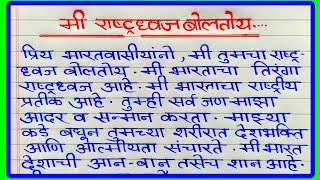 मी राष्ट्रध्वज बोलतोय....
प्रिय भारतवासीयांनो, मी तुमचा राष्ट्र-
ध्वज बोलतोय. मी भारताचा तिरंगा
राष्ट्रध्वज आहे. मी भारताचा राष्ट्रीय
प्रतीक आहे. तुम्ही सर्व जण माझा
आदर व सन्मान करता. माझ्या
कडे बघून तुमच्या शरीरात देशभक्ति
आणि आत्मीयता संचारते. मी भारत
देशाची आन-बान तसेच शान आहे.